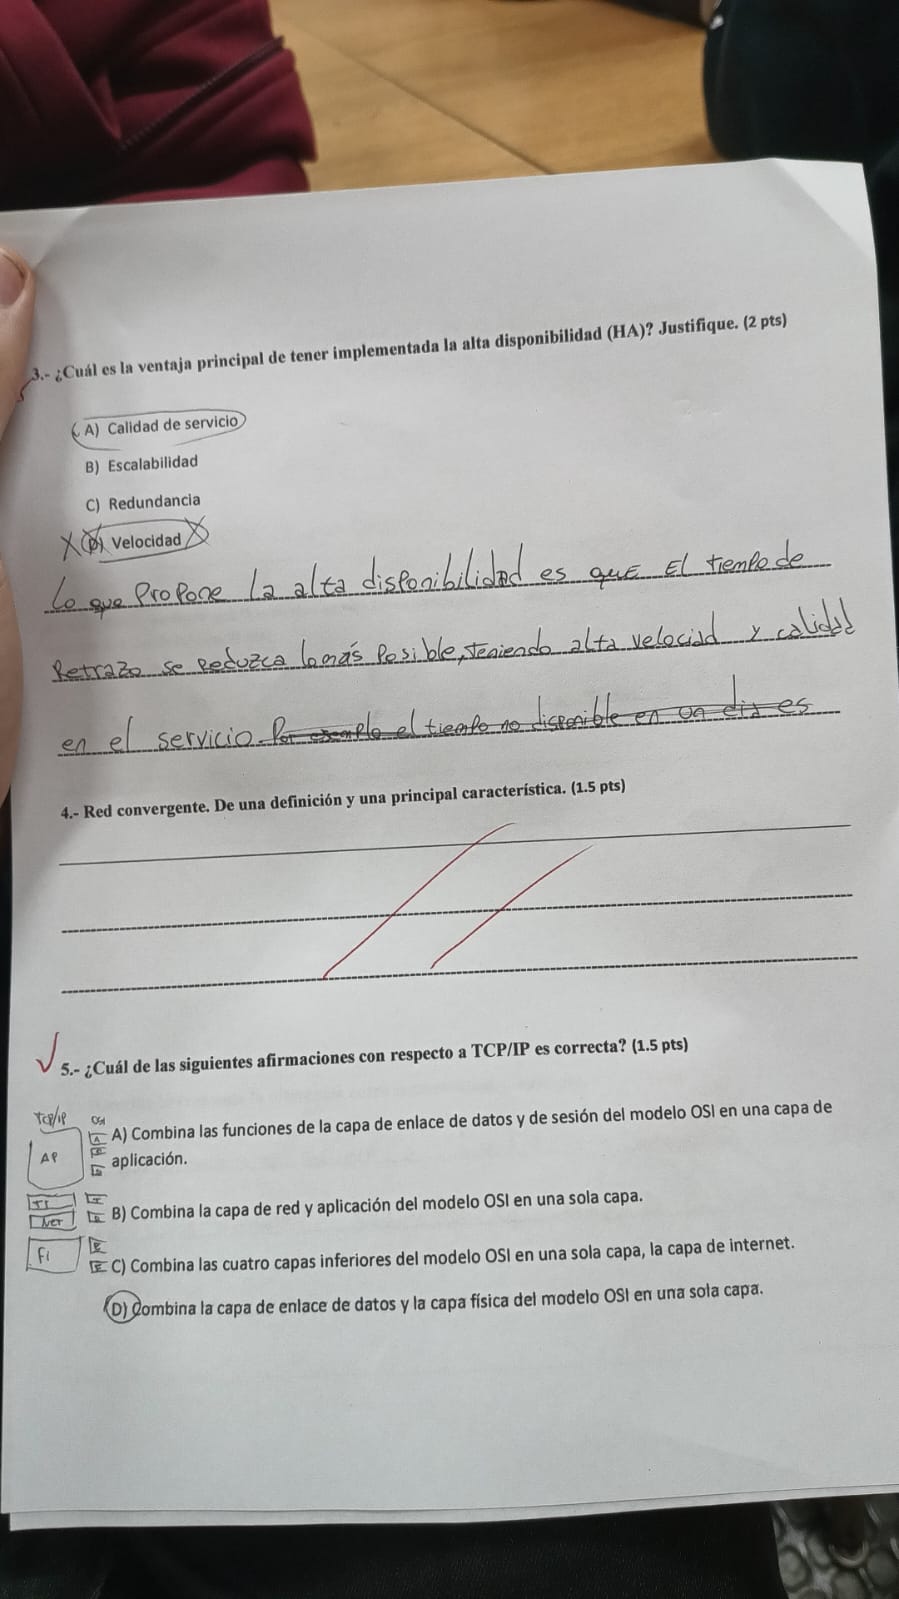 3.- ¿Cuál es la ventaja principal de tener implementada la alta disponibilidad (HA)? Justifique. (2 pts)
A) Calidad de servicio
B) Escalabilidad
C) Redundancia
D) Velocidad
Lo que Propone la alta disponibilidad es que El tiempo de
Retrazo se Reduzca lo más Posible, teniendo alta velocidad y calidad
en el servicio. Por ejemplo el tiempo no disponible en un dia es
4.- Red convergente. De una definición y una principal característica. (1.5 pts)
5.- ¿Cuál de las siguientes afirmaciones con respecto a TCP/IP es correcta? (1.5 pts)
TCP/IP OSI
A) Combina las funciones de la capa de enlace de datos y de sesión del modelo OSI en una capa de
AP aplicación.
B) Combina la capa de red y aplicación del modelo OSI en una sola capa.
NET
Fi
C) Combina las cuatro capas inferiores del modelo OSI en una sola capa, la capa de internet.
D) Combina la capa de enlace de datos y la capa física del modelo OSI en una sola capa.